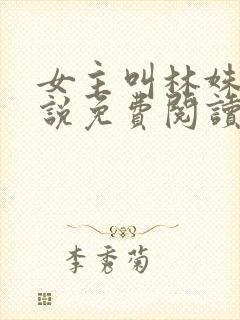 女主叫林妹
說免費閱讀
李秀菊